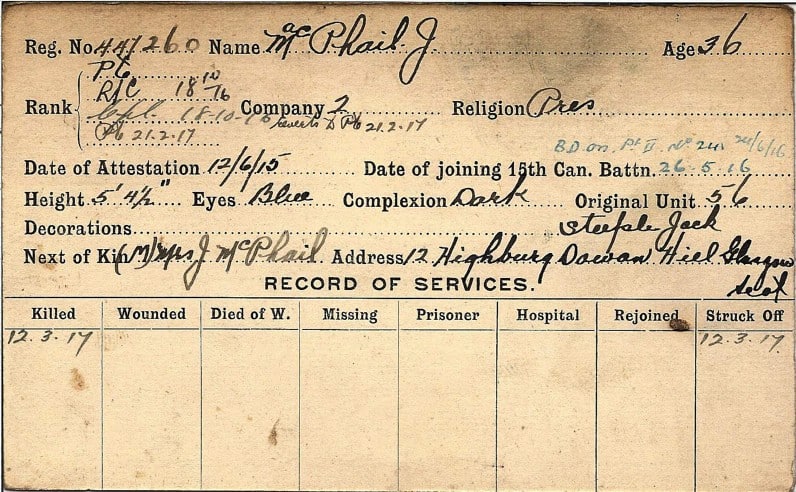 Reg. No. 447260 Name MacPhail J. Age 36
Pte
R/C 18 10/16
Rank Cpl 18-10-16 Company 2 Religion Pres
Pte 21.2.17 reverts to Pte 21.2.17
B.D. on Pt II No 241 24/6/16
Date of Attestation 12/6/15 Date of joining 15th Can. Battn. 26-5-16
Height 5' 4½" Eyes Blue Complexion Dark Original Unit 56
Decorations Steeple Jack
Next of Kin (M) Mrs J McPhail Address 12 Highburg Dowan Hill Glasgow
Scot
RECORD OF SERVICES.
Killed Wounded Died of W. Missing Prisoner Hospital Rejoined Struck Off
12.3.17 12.3.17